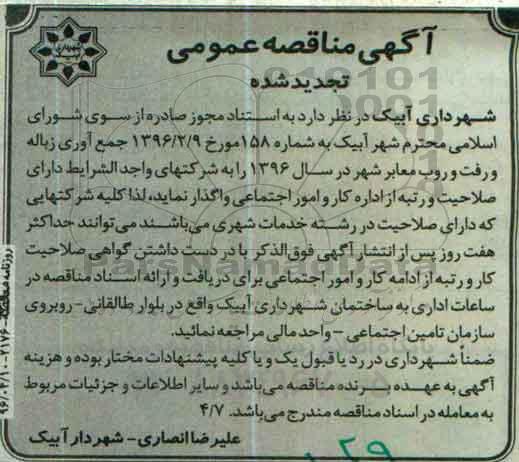 آگهی مناقصه عمومی
تجدید شده
شهرداری آبیک در نظر دارد به استناد مجوز صادره از سوی شورای
اسلامی محترم شهر آبیک به شماره ۱۵۸ مورخ ۱۳۹۶/۲/۹ جمع آوری زباله
و رفت و روب معابر شهر در سال ۱۳۹۶ را به شرکتهای واجد الشرایط دارای
صلاحیت و رتبه از اداره کار و امور اجتماعی واگذار نماید، لذا کلیه شرکتهایی
که دارای صلاحیت در رشته خدمات شهری می‌باشند می‌توانند حداکثر
هفت روز پس از انتشار آگهی فوق‌الذکر با در دست داشتن گواهی صلاحیت
کار و رتبه از ادامه کار و امور اجتماعی برای دریافت و ارائه اسناد مناقصه در
ساعات اداری به ساختمان شهرداری آبیک واقع در بلوار طالقانی - روبروی
سازمان تامین اجتماعی - واحد مالی مراجعه نمائید.
ضمناً شهرداری در رد یا قبول یک و یا کلیه پیشنهادات مختار بوده و هزینه
آگهی به عهده برنده مناقصه می‌باشد و سایر اطلاعات و جزئیات مربوط
به معامله در اسناد مناقصه مندرج می‌باشد. ۴/۷
علیرضا انصاری - شهردار آبیک